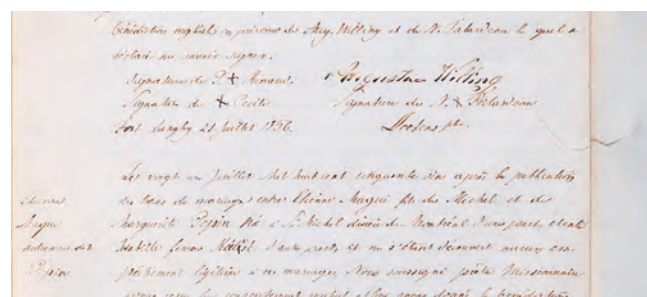 bénédiction nuptiale en présence de Aug. Willing et de N. Falardeau le quel a
déclaré ne savoir signer.
Signature de P. + 
Augustus Willing
Signature de + Cecile
Signature du N. + Falardeau
Fort Langley 21 Juillet 1856.
ptre.
Le vingt un Juillet mil huit cent cinquante six après la publication
des bans de mariage entre Etienne Magui fils de Michel et de
Marguerite Pepin né à St Michel diocèse de Montréal d'une part, et
Isabelle femme d'autre part, et ne s'étant découvert aucun em-
pêchement légitime à ce mariage, Nous soussigné prêtre Missionnaire
avons reçu leur consentement mutuel et leur avons donné la bénédiction
Etienne
Pepin